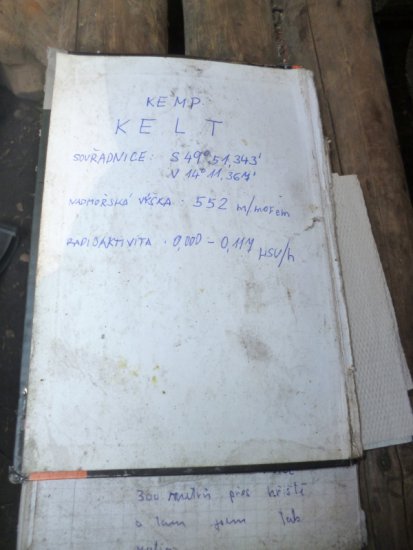 KEMP.
KELT
SOUŘADNICE: S 49° 51,343'
V 14° 11,367'
NADMOŘSKÁ VÝŠKA · 552 m/mořem
RADIOAKTIVITA · 0,000 - 0,117 µSV/h
300 metrů přes hřiště
a tam jsem tak